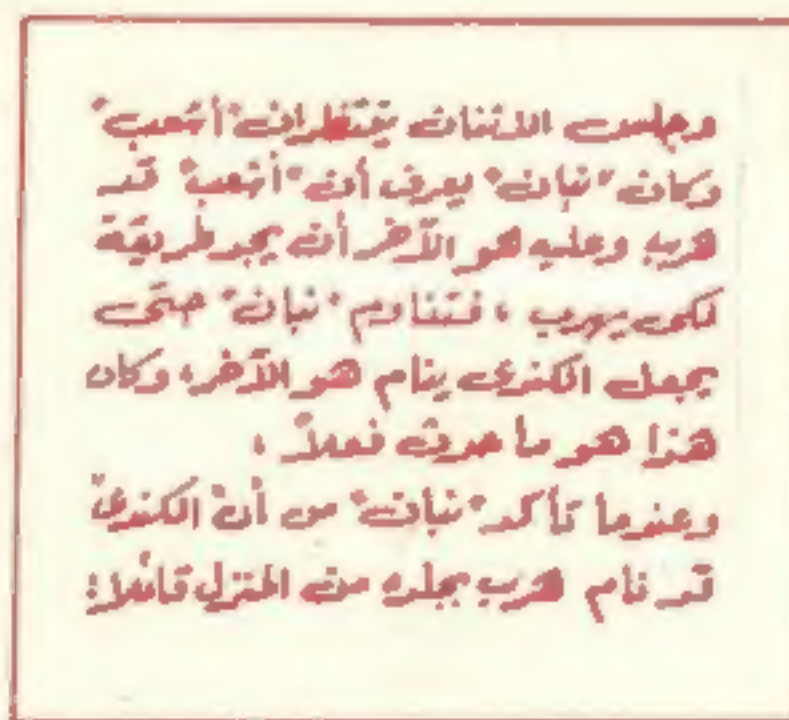 وجلس الاثنان ينتظران "أشعب"
وكان "نبان" يعرف أن "أشعب" قد
هرب وعليه هو الآخر أن يجد طريقة
لكى يهرب ، فتناوم "نبان" حتى
يجعل الكندى ينام هو الآخر، وكان
هذا هو ما حدث فعلاً .
وعندما تأكد "نبان" من أن الكندى
قد نام هرب بجلده من المنزل قائلاً: